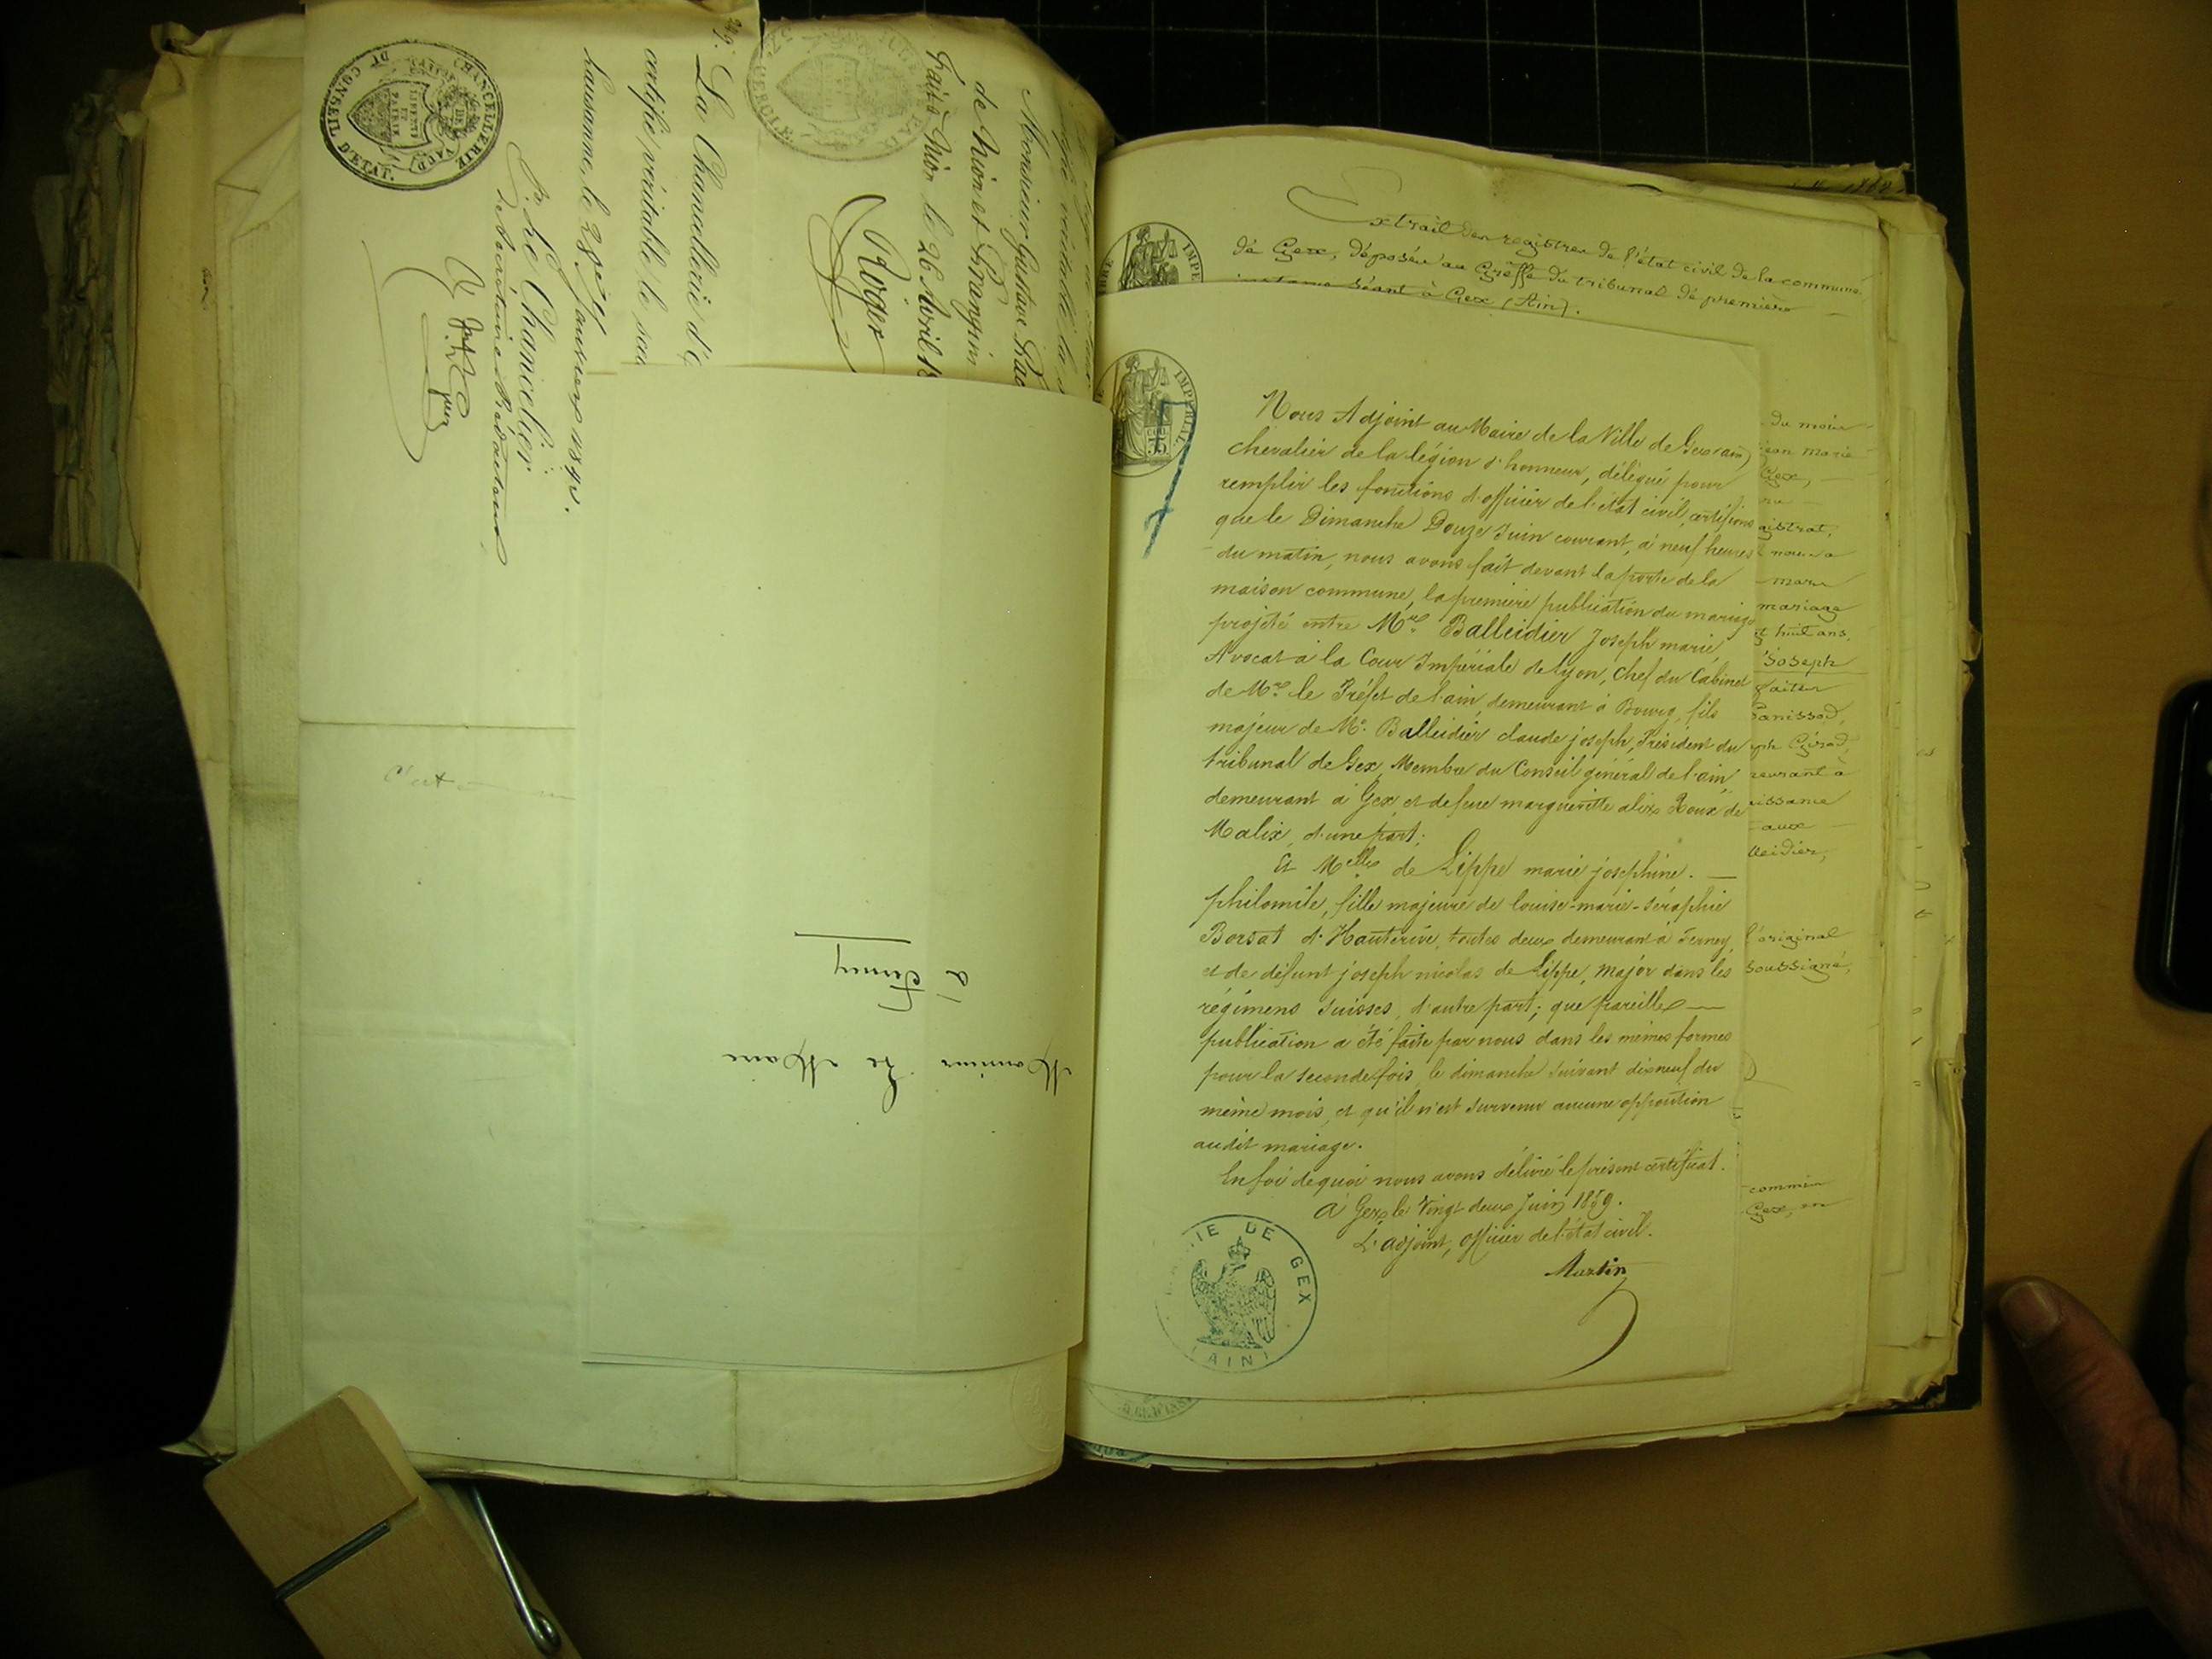 CHANCELLERIE
DU CONSEIL D'ETAT.
LIBERTÉ
ET
PATRIE
Monsieur Gustave
de Nion et Grangein
Fait à Nion le 26 Avril
Roger
La Chancellerie d'
certifie véritable le
Lausanne, le 28
Le Chancelier
à Ferney
Monsieur Le Maire
Extrait des registres de l'état civil de la commune
de Gex, déposés au Greffe du tribunal de première
instance séant à Gex (Ain).
Nous Adjoint au Maire de la Ville de Gex (ain)
chevalier de la légion d'honneur, délégué pour
remplir les fonctions d'officier de l'état civil, certifions
que le Dimanche Douze Juin courant, à neuf heures
du matin, nous avons fait devant la porte de la
maison commune, la première publication du mariage
projété entre Mr. Balleidier Joseph marie
Avocat à la Cour Impériale de Lyon, Chef du Cabinet
de Mr. le Préfet de l'ain, demeurant à Bourg, fils
majeur de Mr. Balleidier claude joseph, Président du
tribunal de Gex, Membre du Conseil général de l'ain
demeurant à Gex et de feue marguerite alix Roux de
Malix, d'une part;
Et Melle de Lippe marie joséphine.
philomèle, fille majeure de louise-marie-séraphie
Borsat d'Hauterive, toutes deux demeurant à Ferney,
et de défunt joseph nicolas de Lippe, major dans les
régimens Suisses, d'autre part; que pareille
publication a été faite par nous dans les mêmes formes
pour la seconde fois, le dimanche suivant dixneuf du
même mois, et qu'il n'est survenu aucune opposition
audit mariage.
En foi de quoi nous avons délivré le présent certificat.
à Gex le vingt deux Juin 1859.
L'adjoint, officier de l'état civil.
Martin
MAIRIE DE GEX
(AIN)
du mois
jean marie
Gex,
mariage
huit ans,
Joseph
Panissod,
Girod,
demeurant à
aux
l'original
soussigné,
Gex, en